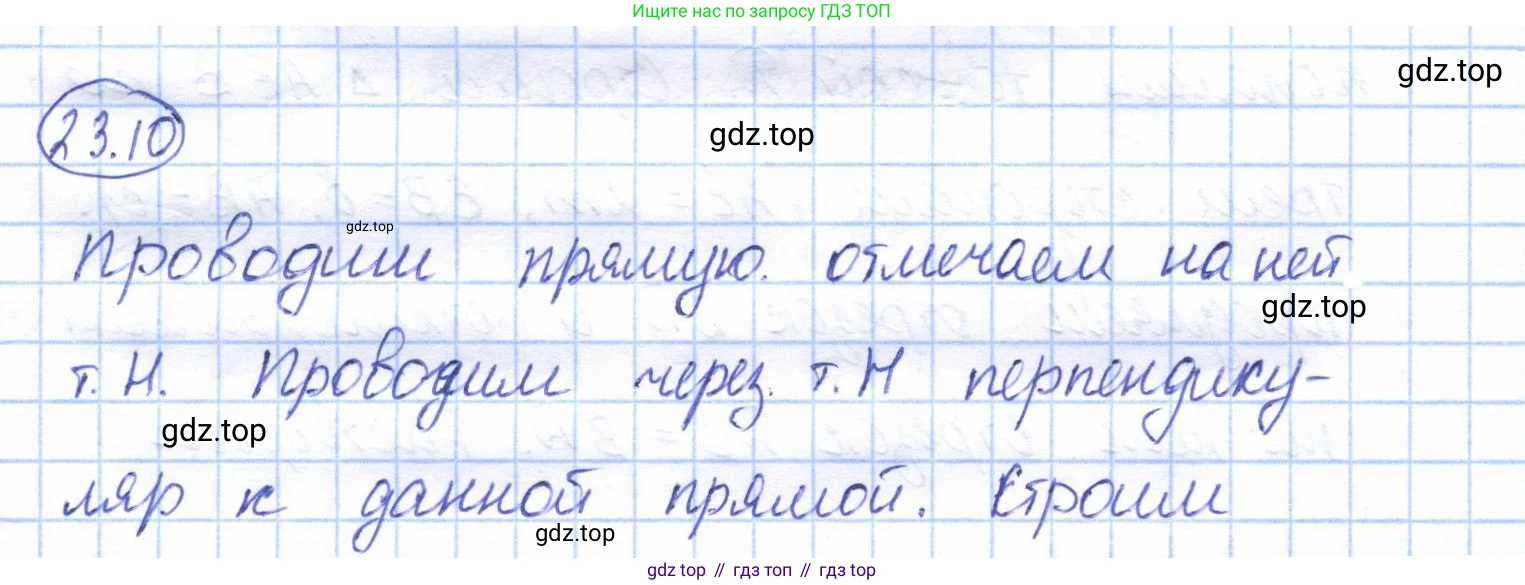 Ищите нас по запросу ГДЗ ТОП
gdz.top
23.10
gdz.top
gdz.top
Проводим прямую. отмечаем на ней
gdz.top
т. Н. Проводим через т. Н перпендику-
gdz.top
ляр к данной прямой. Строим
gdz.top
gdz top // гдз топ // гдз top